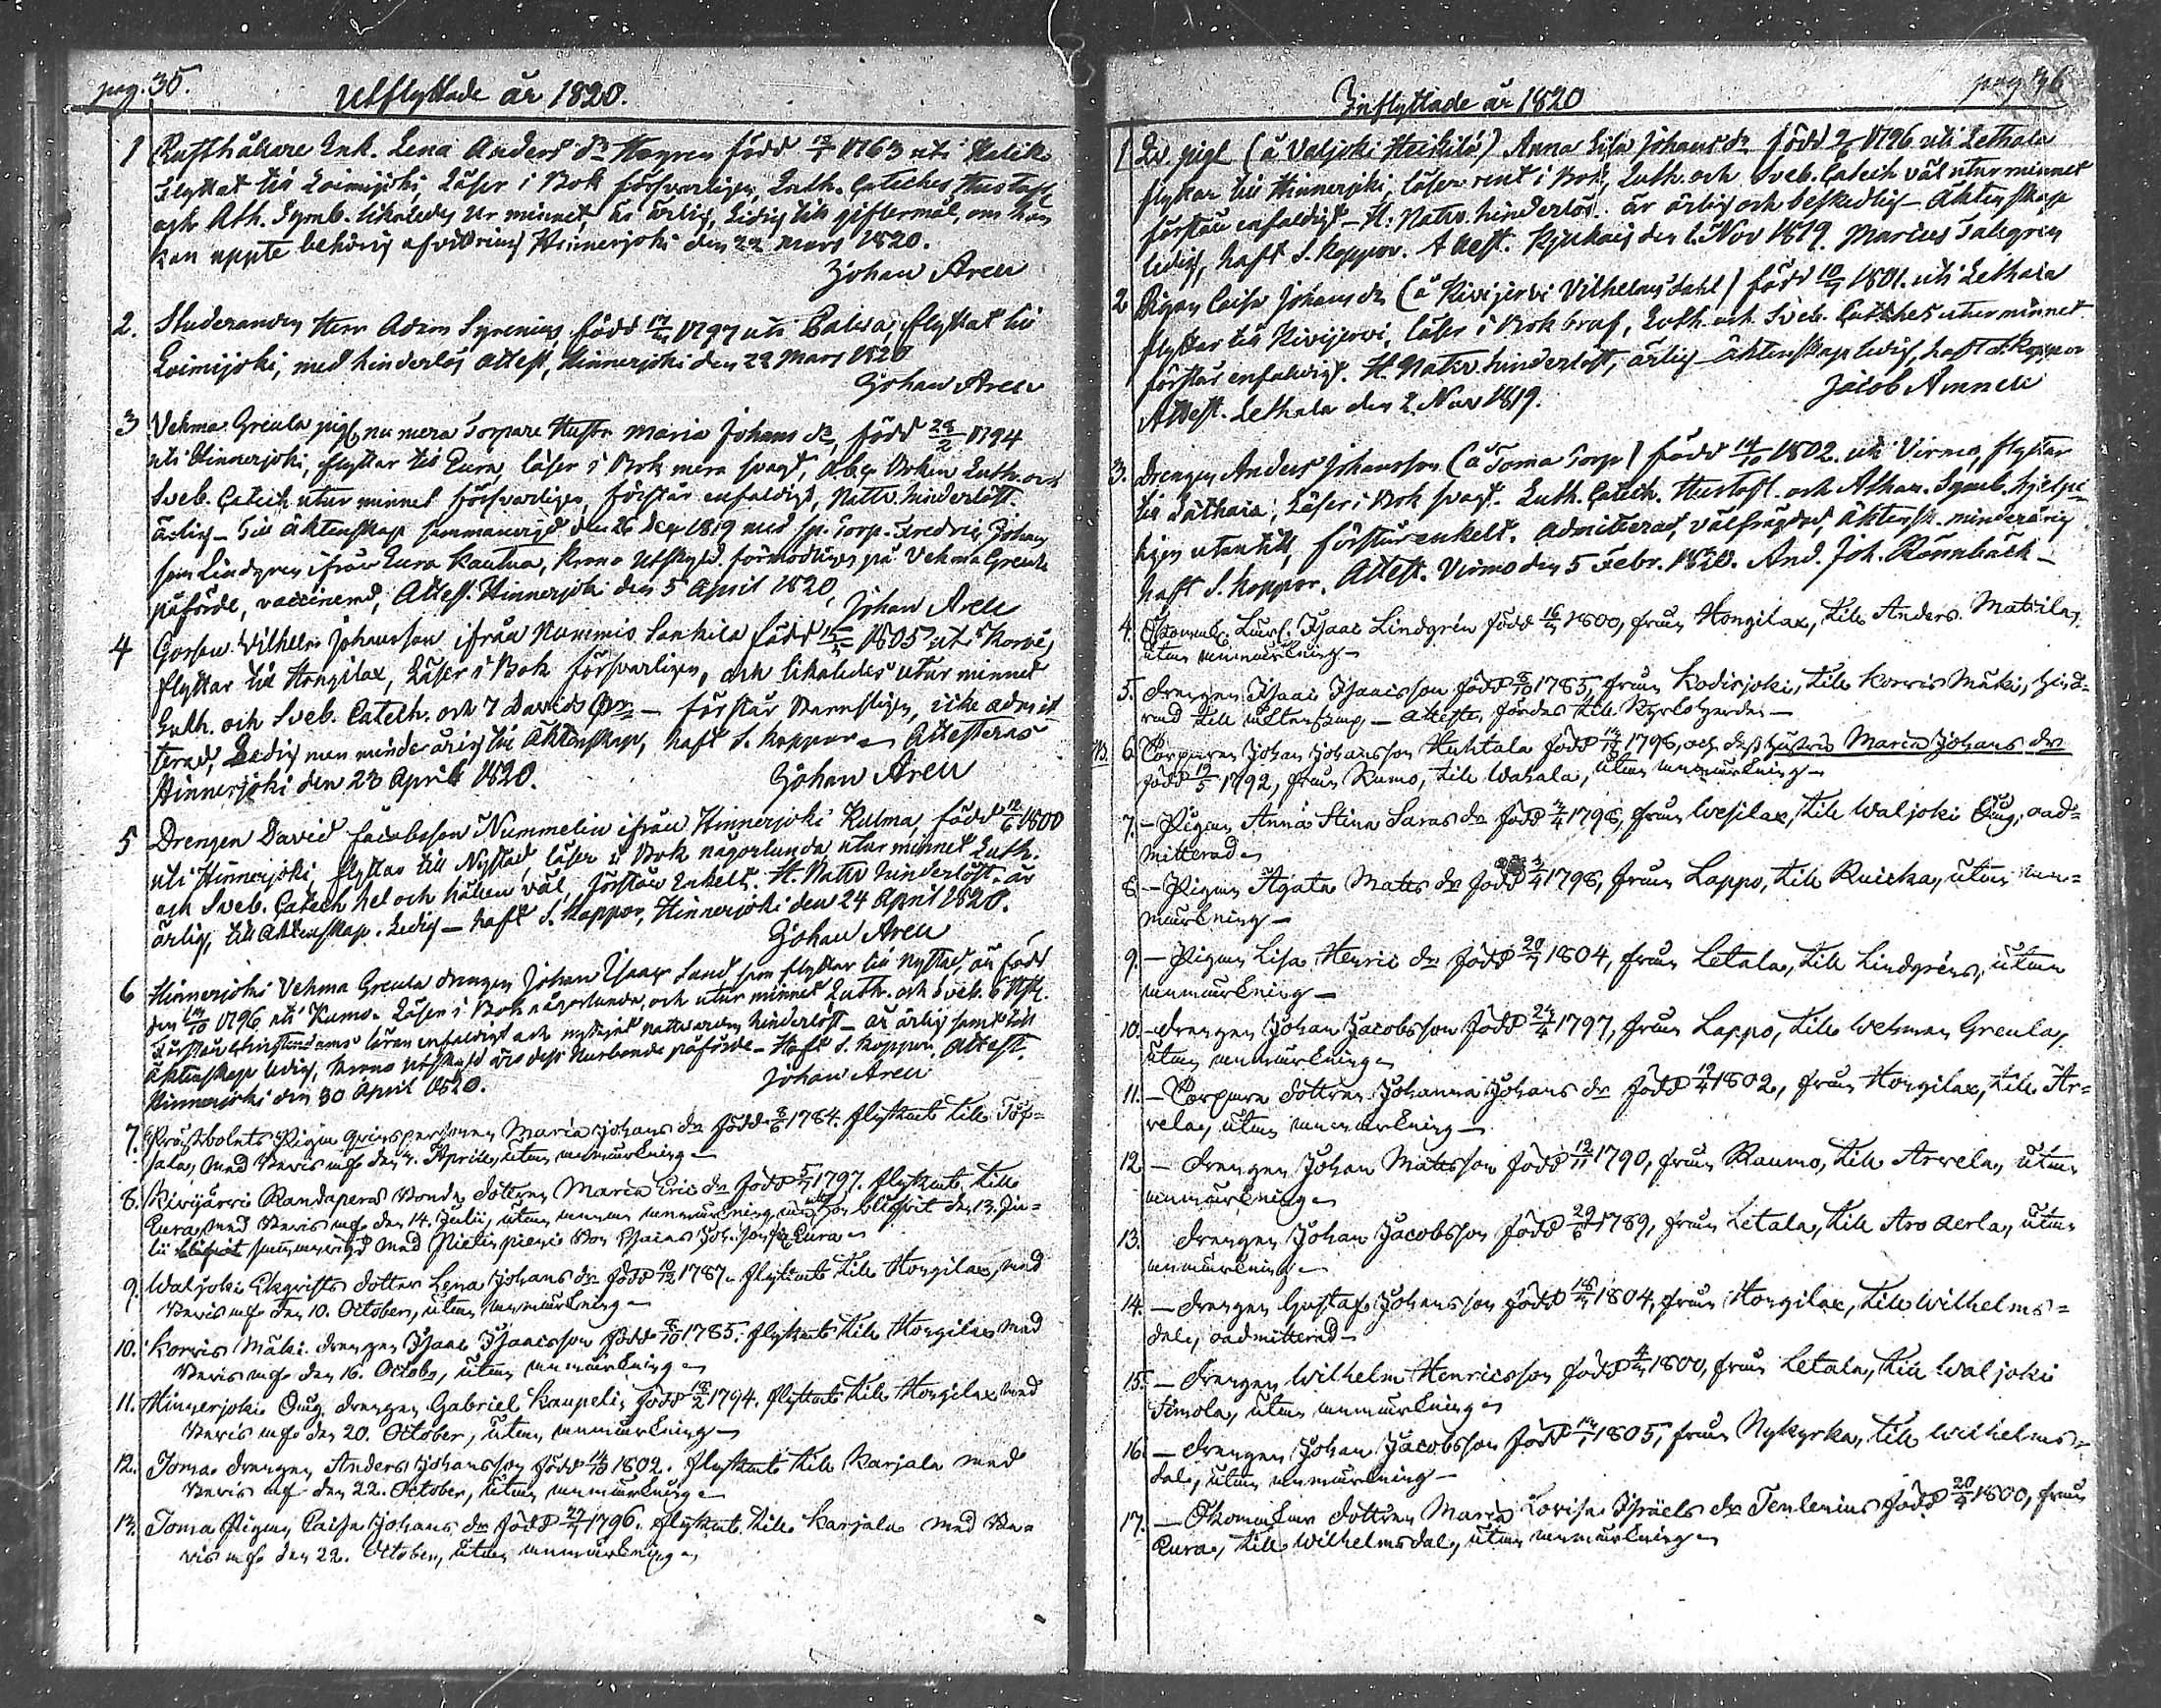 pag. 35.
Utflyttade år 1820.
1 Rusthållare Enk. Lena Anders dr född 1763 uti Halik
flyttat till Loimijoki, Läser i Bok försvarligen, Luth. Cateches Hustafl
och Ath. Symb. likaledes ur minnet, är ärlig, Ledig till giftermål, om hon
kan uppte behörig afvittring Hinnerjoki den 22 mars 1820.
Johan Aren
2. Studeranden Herr Adam Syrenius, född 1797 uti flyttat till
Loimijoki, med hinderlös attest, Hinnerjoki den 22 Mars 1820
Johan Aren
3 Vehma Greula pig, nu mera Torpare Hustr. Maria Johans dr, född 28/2 1794
uti Hinnerjoki, flyttar till Eura, läser i Bok mera svagt, Abc Boken Luth. och
Sveb. Catech. utur minnet försvarligen, förstår enfaldigt, Nattv. hinderlöst.
ärlig - till äktenskap sammanvigd den 26 Dec 1819 med Sp. Torp. Fredric Johans
son Lindgren ifrån Eura Kautua, Krono Utskyld. förmodligen på Vehma Greula
påförde, vaccinerad, Attest. Hinnerjoki den 5 April 1820,
Johan Aren
4 Gossen Wilhelm Johansson ifrån Nummis Sankila född 1805 uti Korvis
flyttar till Hongilax, Läser i Bok försvarligen, och likaledes utur minnet
Luth. och Sveb. Catech. och 7 Davids - förstår icke admit
terad, Ledig men minderårig till Äktenskap, haft S. koppor Attesteras
Hinnerjoki den 23 April 1820.
Johan Aren
5 Drengen David Jacobsson Nummelin ifrån Hinnerjoki Kulma, född 12/6 1800
uti Hinnerjoki, flyttar till Nystad, läser i Bok någorlunda utur minnet Luth.
och Sveb. Catech hel och hållen väl, förstår Enkelt. H. Nattv hinderlöst - är
ärlig, till Äktenskap Ledig - haft S. Koppor, Hinnerjoki den 24 April 1820.
Johan Aren
6 Hinnerjoki Vehma Greula drengen Johan Isaac Sand, som flyttar till Nystad, är född
den 1796 uti Kumo. Läser i Bok någorlunda, och utur minnet Luth. och Sveb.
Förstår Christendoms läran enfaldigt och nyttjat nattvarden hinderlöst - är ärlig samt till
äktenskap ledig, Krono Utskyld äro dess Husbonde påförde - Haft S. Koppor. Attest.
Hinnerjoki den 30 April 1820.
Johan Aren
7. Prästbolets Pigan Maria Johans dr född 8/6 1784. flyttat till Töf-
sala, med Bevis af den 7. Aprill, utan anmärkning -
8. Kivijärvi Randaperes Bonde dottren Maria Eric dr född 1797. flyttat till
Eura, med Bevis af den 14. Julii, utan annan anmärkning, än blifvit den 13. Ju-
lii blifvit sammanvigd med Eura
9. Waljoki Ekqvists dotter Lena Johans dr född 10/12 1787. flyttat till Hongilax, med
Bevis af den 10. October, utan anmärkning -
10. Korvis Mäki drengen Isaac Isaacsson född 8/10 1785. flyttat till Hongilax med
Bevis af den 16. Octob., utan anmärkning -
11. Hinnerjoki Oug. drengen Gabriel Kaupeli, född 18/2 1794. flyttat till Hongilax med
Bevis af den 20. October, utan anmärkning -
12. Toma drengen Anders Johansson född 14/10 1802. flyttat till Karjala med
Bevis af den 22. October, utan anmärkning -
13. Toma Pigan Caisa Johans dr född 1796. flyttat till Karjala med Be-
vis af den 22. October, utan anmärkning -
pag 36
Inflyttade år 1820
1 pigl (å Valjoki Heikilä) Anna Lisa Johans dr född 1796 uti Lethala
flyttar till Hinnerjoki, läser rent i Bok, Luth. och Sveb. Catech väl utur minnet
förstår enfaldigt - H. Nattv. hinderlöst. är ärlig och beskedlig - Äktenskap
ledig, haft S. koppor. Attest. den 1 Nov 1819. Marcus Talgren
2 Pigan Caisa Johans dr (å Kivijervi Vilhelmsdahl) född 1801 uti Lethala
flyttar till Kivijervi, läser i Bok braf, Luth. och Sveb. Cateches utur minnet
förstår enfaldigt. H. Nattv. hinderlöst, ärlig - Äktenskap ledig, haft S. koppor
Attest. Lethala den 2. Nov 1819.
Jacob Amnell
3. Drengen Anders Johansson (å Toma Torp) född 14/10 1802. uti Virmo, flyttar
till Läser i Bok svagt. Luth. Catech. Hustafl. och Athan. Symb. hjelpe-
ligen utantill, förstår enkelt. Admitterad, välfrägdad, Äktensk. minderårig
haft S. koppor. Attest. Virmo den 5 Febr. 1820. And. Joh. Rönnbäck -
4. Isaac Lindgrén född 1800, från Hongilax, till Anders Mattila,
utan anmärkning -
5. Drengen Isaac Isaacsson född 8/10 1785, från Kodisjoki, till Korvis Mäki, hind-
rad till äktenskap - Attesten
6. Torparen Johan Johansson Huhtala född 1796, och dess hustru Maria Johans dr
född 19/5 1792, från Kumo, till Wahala, utan anmärkning -
7. - Pigan Anna Stina Saras dr född 1798, från Wesilax, till Waljoki Oug, oad-
mitterad -
8 - Pigan Agata Matts dr född 1798, från Lappo, till Ruiska, utan an-
märkning -
9. - Pigan Lisa Henric dr född 20/7 1804, från Letala, till Lindgréns, utan
anmärkning -
10. - drengen Johan Jacobsson född 24/4 1797, från Lappo, till Wehman Greula,
utan anmärkning -
11. - Torpare dottren Johanna Johans dr född 19/4 1802, från Hongilax, till Ar-
vela, utan anmärkning -
12 - drengen Johan Mattsson född 12/11 1790, från Raumo, till Arvela, utan
anmärkning -
13. drengen Johan Jacobsson född 29/6 1789, från Letala, till Aro utan
anmärkning -
14. - drengen Gustaf Johansson född 1804, från Hongilax, till Wilhelms-
dal, oadmitterad -
15. - drengen Wilhelm Henricsson född 1800, från Letala, till Waljoki
Simola, utan anmärkning -
16. - drengen Johan Jacobsson född 1805, från Nykyrka, till Wilhelms-
dal, utan anmärkning -
17. - dottren Maria Lovisa Israels dr Tenlenius född 1800, från
Eura, till Wilhelmsdal, utan anmärkning -